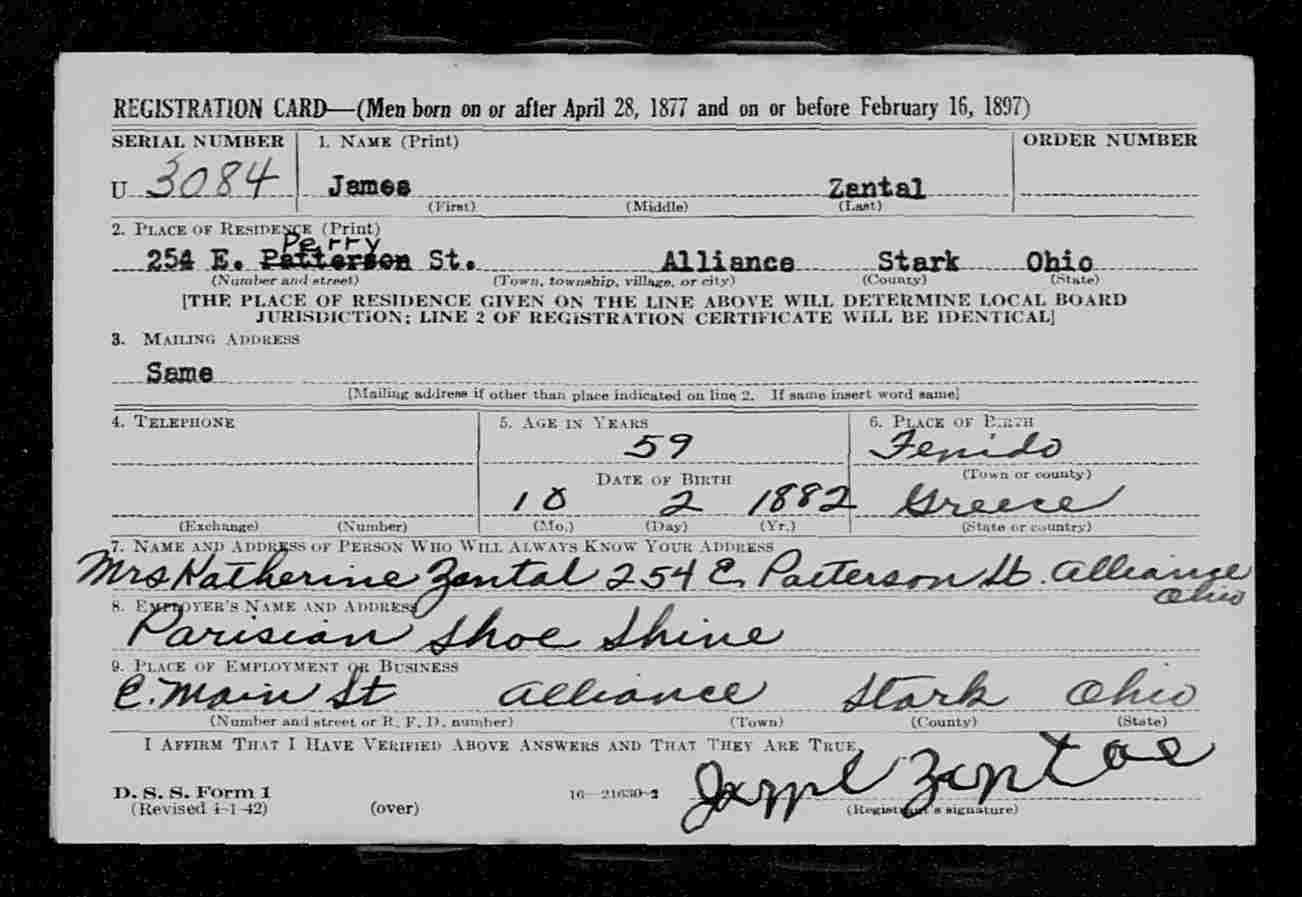 REGISTRATION CARD—(Men born on or after April 28, 1877 and on or before February 16, 1897)
SERIAL NUMBER 1. NAME (Print) ORDER NUMBER
U 3084 James Zantal
(First) (Middle) (Last)
2. PLACE OF RESIDENCE (Print)
Perry
254 E. Patterson St. Alliance Stark Ohio
(Number and street) (Town, township, village, or city) (County) (State)
[THE PLACE OF RESIDENCE GIVEN ON THE LINE ABOVE WILL DETERMINE LOCAL BOARD
JURISDICTION; LINE 2 OF REGISTRATION CERTIFICATE WILL BE IDENTICAL]
3. MAILING ADDRESS
Same
[Mailing address if other than place indicated on line 2. If same insert word same]
4. TELEPHONE 5. AGE IN YEARS 6. PLACE OF BIRTH
59 Fenido
(Town or county)
DATE OF BIRTH
10 2 1882 Greece
(Exchange) (Number) (Mo.) (Day) (Yr.) (State or country)
7. NAME AND ADDRESS OF PERSON WHO WILL ALWAYS KNOW YOUR ADDRESS
Mrs Katherine Zantal 254 E. Patterson St. Alliance
Ohio
8. EMPLOYER'S NAME AND ADDRESS
Parisian Shoe Shine
9. PLACE OF EMPLOYMENT OR BUSINESS
E. Main St Alliance Stark Ohio
(Number and street or R. F. D. number) (Town) (County) (State)
I AFFIRM THAT I HAVE VERIFIED ABOVE ANSWERS AND THAT THEY ARE TRUE.
D. S. S. Form 1
(Revised 4-1-42) (over) 16—21630-2 (Registrant's signature)